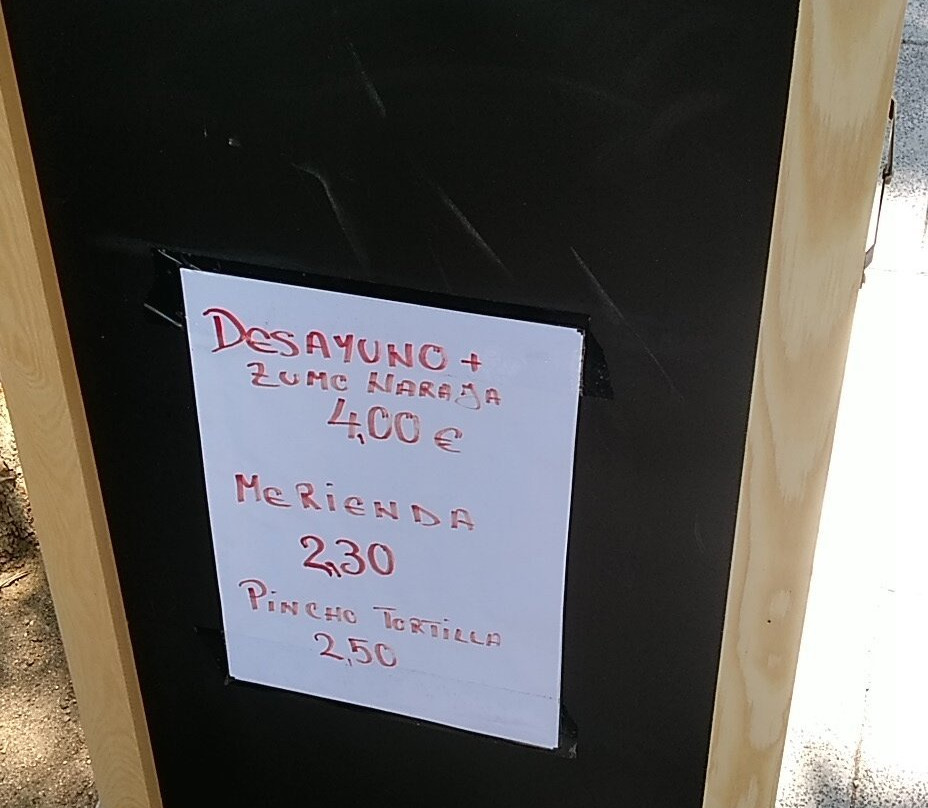 DESAYUNO +
ZUMO NARAJA
4,00 €
MERIENDA
2,30
PINCHO TORTILLA
2,50